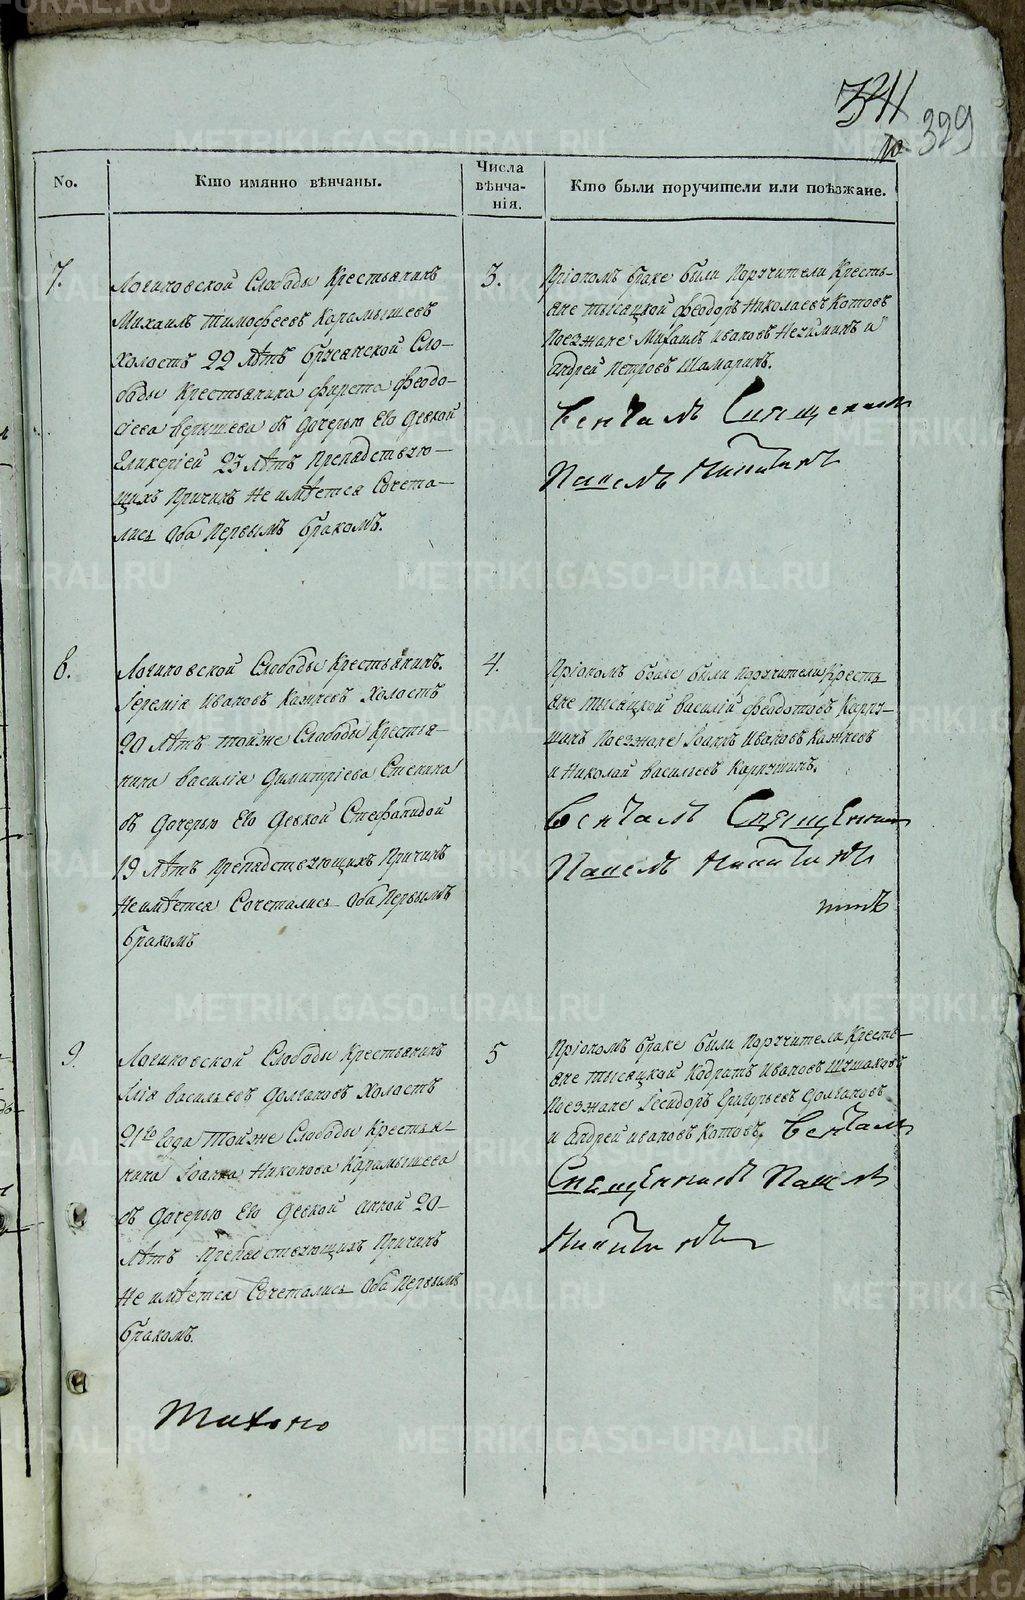 341
329
No.
Кто имянно вѣнчаны.
Числа
вѣнча-
нія.
Кто были поручители или поѣзжане.
7.
Логиновской Слободы Крестьянинъ
Михаилъ Тимофеевъ Карамышевъ
холостъ 22 лѣтъ Брусянской Сло-
боды Крестьянина Феодо-
сіева съ дочерью Его девкой
Гликеріей 23 лѣтъ Препядствую-
щихъ Причинъ Не имѣется Сочета-
лись Оба Первымъ бракомъ.
3.
Пріономъ браке были Поручители Кресть-
яне тысяцкой Феодоръ Николаевъ Котовъ
Поезжане Михаилъ Ивановъ и
Андрей Петровъ Шамаринъ.
Венчалъ Священникъ
Павелъ Никитинъ
8.
Логиновской Слободы Крестьянинъ.
Іеремія Ивановъ холостъ
20 лѣтъ тойже Слободы Крестья-
нина Василія Димитріева Стенина
съ дочерью Его девкой Стефанидой
19 лѣтъ Препядствующихъ Причинъ
Неимѣется Сочетались Оба Первымъ
бракомъ
4.
Пріономъ браке были Поручители Кресть
яне тысяцкой Василій Феодотовъ Карпу-
шинъ Поезжане Іоаннъ Ивановъ
и Николай Васильевъ Карпушинъ.
Венчалъ Священникъ
Павелъ Никитинъ
9.
Логиновской Слободы Крестьянинъ
Илія Васильевъ Долгановъ холостъ
21го года тойже Слободы Крестья-
нина Іоанна Никонова Карамышева
съ дочерью Его девкой Анной 20-
лѣтъ Препядствующихъ Причинъ
Не имѣется Сочетались Оба Первымъ
бракомъ.
5
Пріономъ браке были Поручители Кресть-
яне тысяцкой Кодратъ Ивановъ
Поезжане Ісидоръ Григорьевъ Долгановъ
и Андрей Ивановъ Котовъ. Венчалъ
Священникъ Павелъ
Никитинъ
METRIKI.GASO-URAL.RU